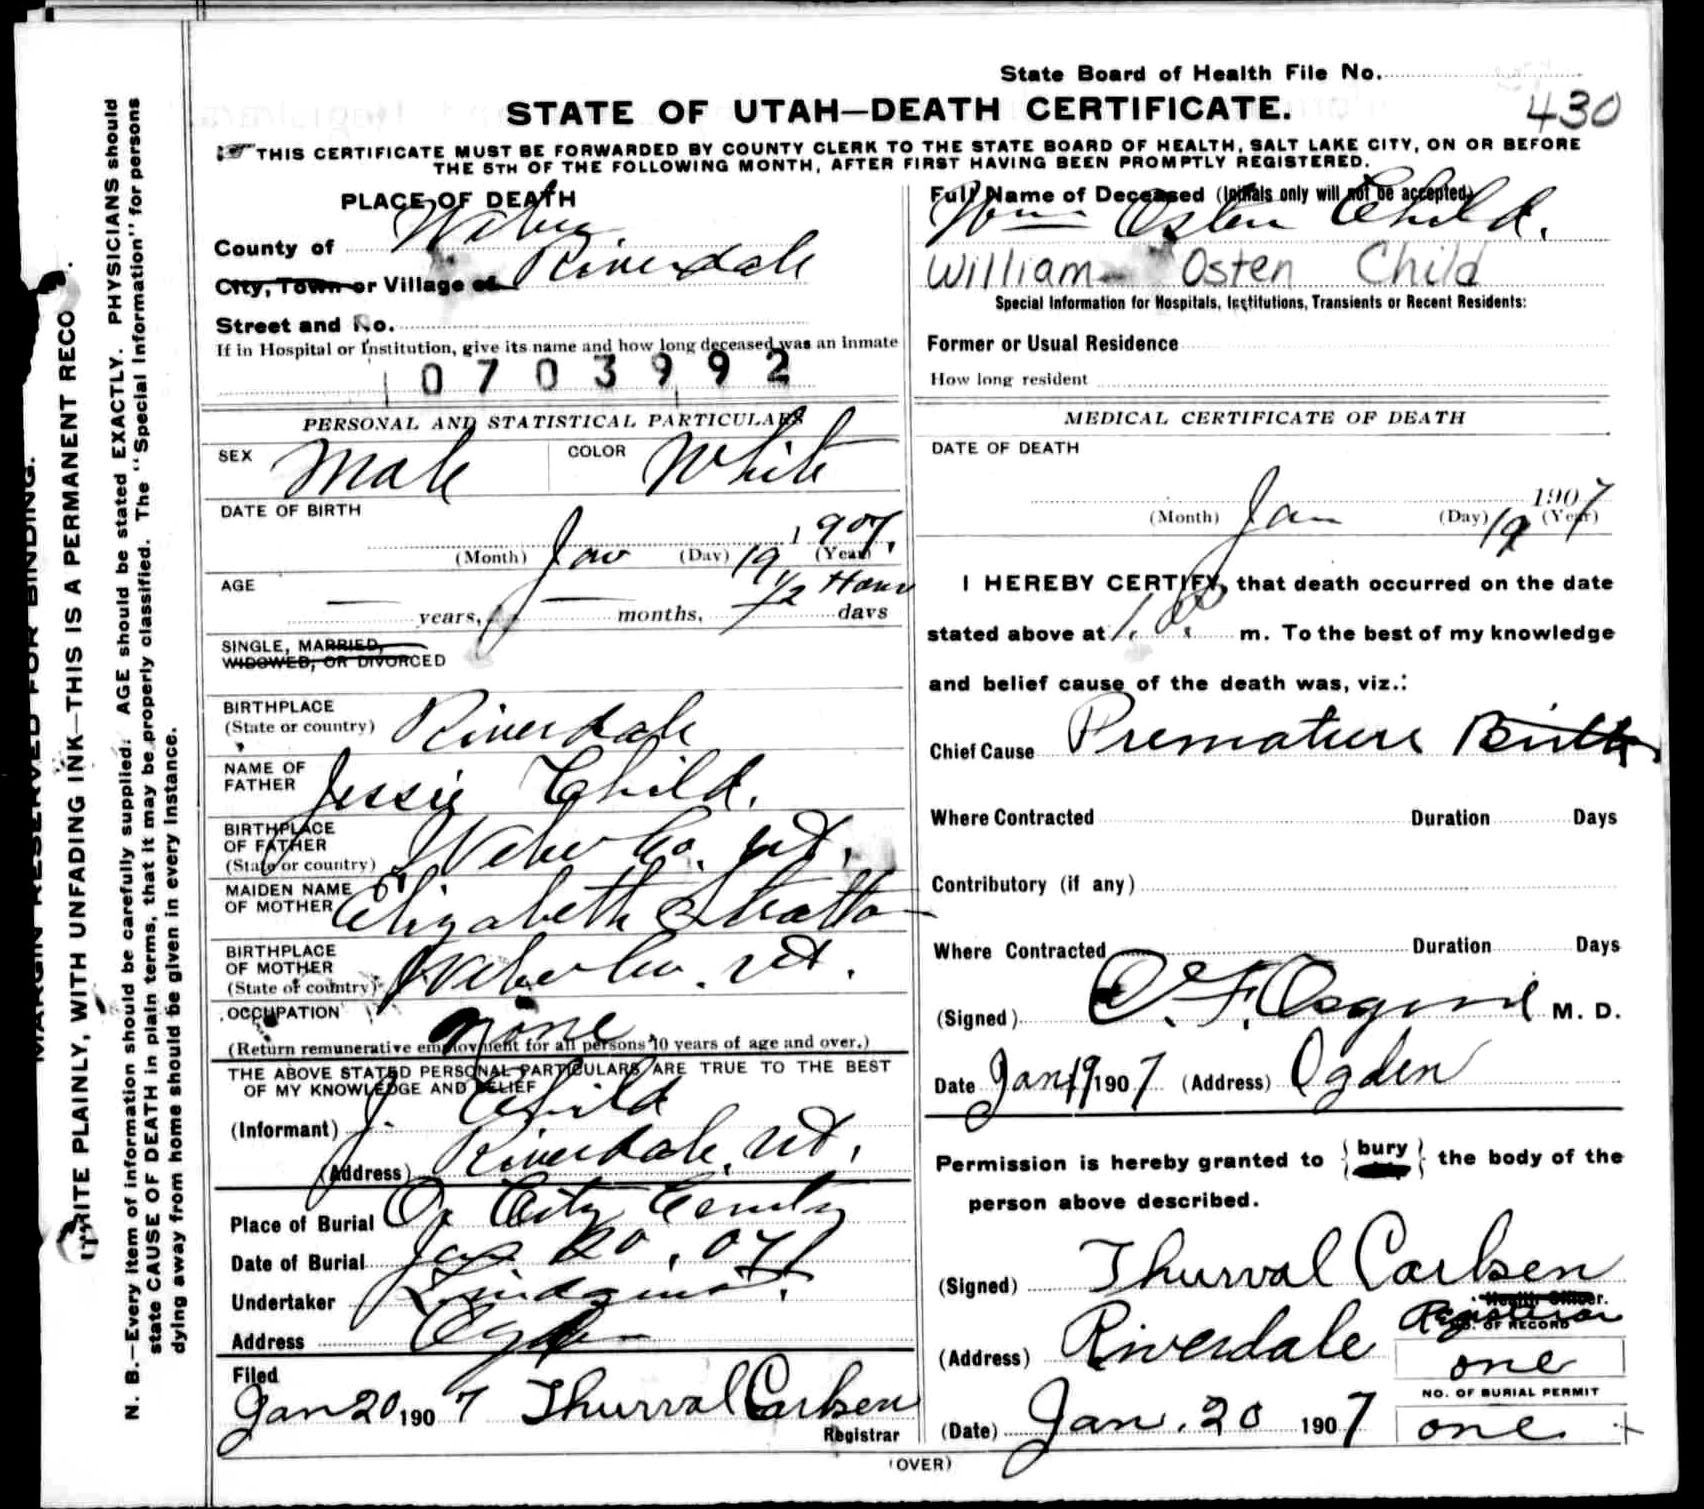 State Board of Health File No.
430
STATE OF UTAH—DEATH CERTIFICATE.
THIS CERTIFICATE MUST BE FORWARDED BY COUNTY CLERK TO THE STATE BOARD OF HEALTH, SALT LAKE CITY, ON OR BEFORE
THE 5TH OF THE FOLLOWING MONTH, AFTER FIRST HAVING BEEN PROMPTLY REGISTERED.
PLACE OF DEATH
County of Weber
City, Town or Village of Riverdale
Street and No.
If in Hospital or Institution, give its name and how long deceased was an inmate
0703992
PERSONAL AND STATISTICAL PARTICULARS
SEX Male COLOR White
DATE OF BIRTH
(Month) Jan (Day) 19 1907. (Year)
AGE — years, — months, ½ Hour days
SINGLE, MARRIED,
WIDOWED, OR DIVORCED
BIRTHPLACE
(State or country) Riverdale
NAME OF
FATHER Jessie Child.
BIRTHPLACE
OF FATHER
(State or country) Weber Co. Ut.
MAIDEN NAME
OF MOTHER Elizabeth Stratton
BIRTHPLACE
OF MOTHER
(State or country) Weber Co. Ut.
OCCUPATION none
(Return remunerative employment for all persons 10 years of age and over.)
THE ABOVE STATED PERSONAL PARTICULARS ARE TRUE TO THE BEST
OF MY KNOWLEDGE AND BELIEF
(Informant) J. Child
(Address) Riverdale, Ut.
Place of Burial City
Date of Burial Jan 20, 07
Undertaker Lindquist.
Address Ogden
Filed
Jan 20 1907 Thurval Carlsen
Registrar
Full Name of Deceased (Initials only will not be accepted)
Wm Osten Child.
William Osten Child
Special Information for Hospitals, Institutions, Transients or Recent Residents:
Former or Usual Residence
How long resident
MEDICAL CERTIFICATE OF DEATH
DATE OF DEATH
(Month) Jan (Day) 19 1907 (Year)
I HEREBY CERTIFY, that death occurred on the date
stated above at 1. P. m. To the best of my knowledge
and belief cause of the death was, viz.:
Chief Cause Premature Birth
Where Contracted Duration Days
Contributory (if any)
Where Contracted Duration Days
(Signed) Osgood M. D.
Date Jan 19 1907 (Address) Ogden
Permission is hereby granted to {bury} the body of the
person above described.
(Signed) Thurval Carlsen
Health Officer.
Registrar
(Address) Riverdale
NO. OF RECORD
one
NO. OF BURIAL PERMIT
one
(Date) Jan. 20 1907
(OVER)
MARGIN RESERVED FOR BINDING.
WRITE PLAINLY, WITH UNFADING INK—THIS IS A PERMANENT RECO
N. B.—Every item of information should be carefully supplied. AGE should be stated EXACTLY. PHYSICIANS should
state CAUSE OF DEATH in plain terms, that it may be properly classified. The "Special Information" for persons
dying away from home should be given in every instance.